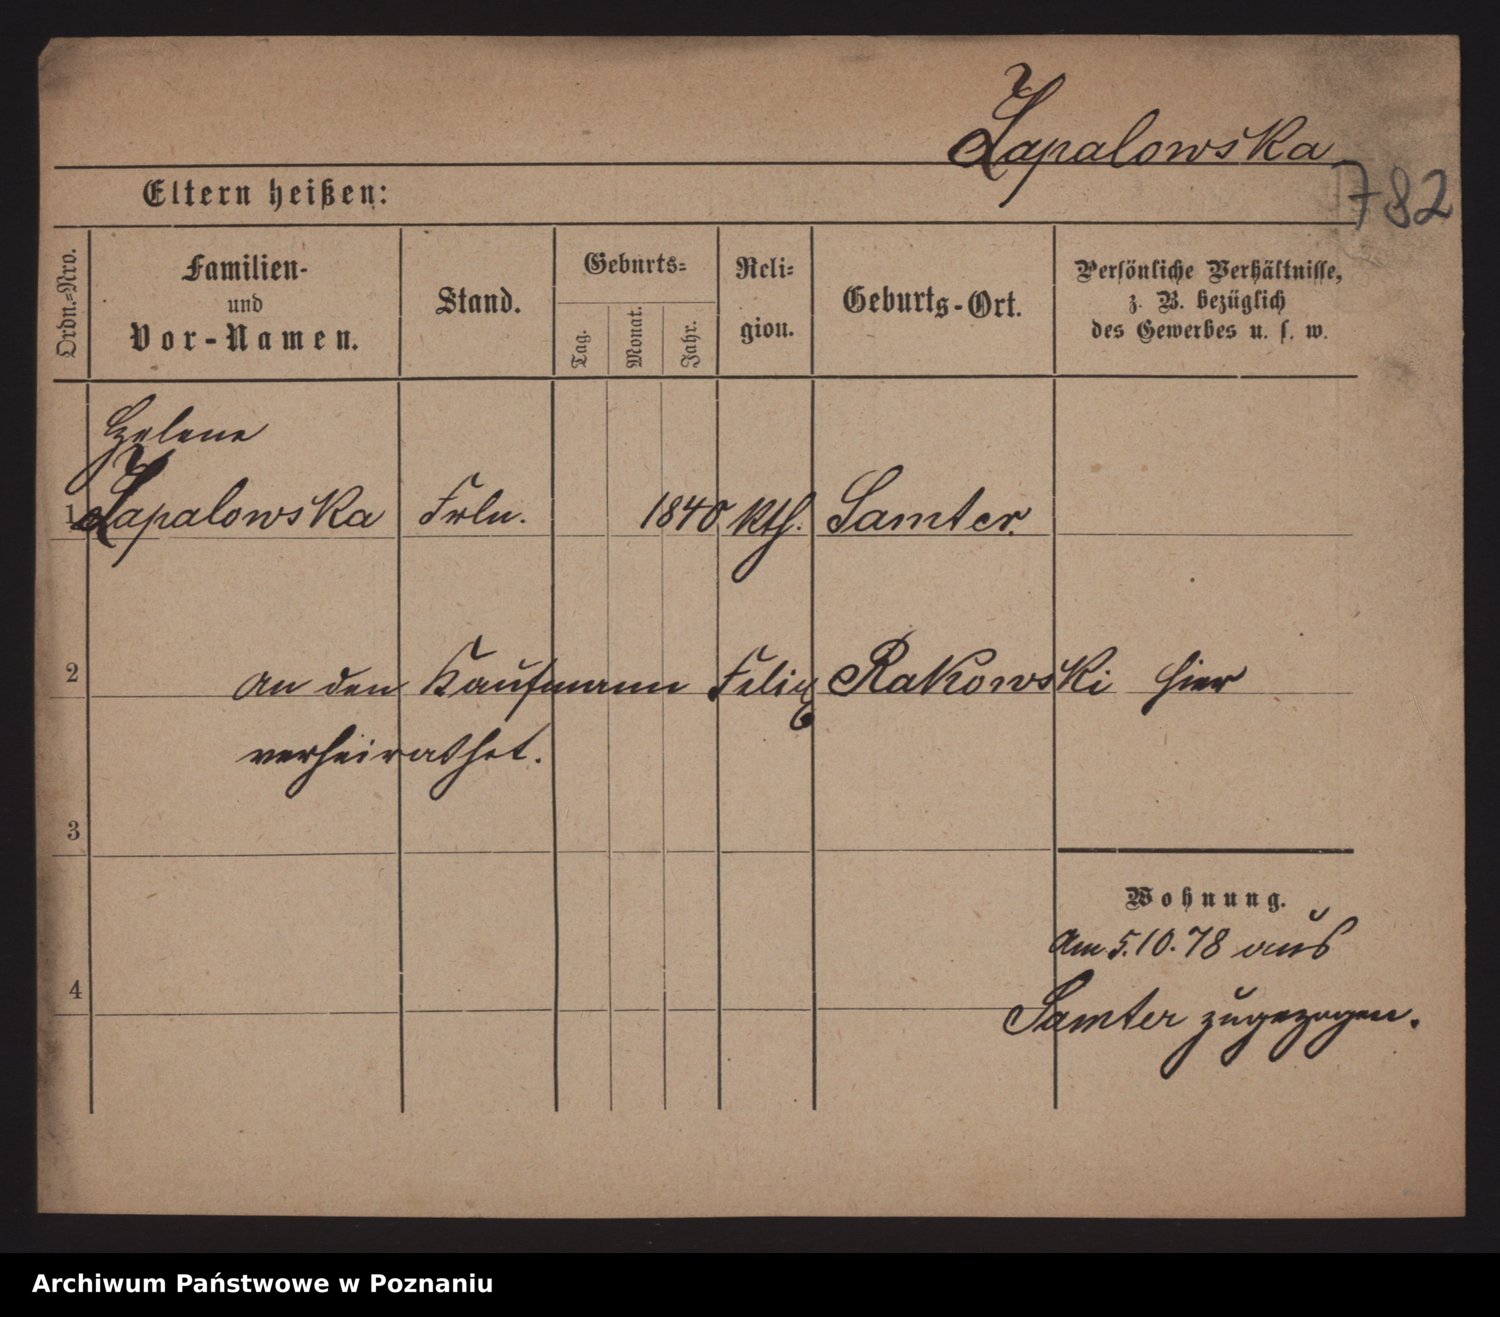 Zapalowska
782
Eltern heißen:
Ordn.-Nro.
Familien-
und
Vor-Namen.
Stand.
Geburts-
Tag.
Monat.
Jahr.
Reli-
gion.
Geburts-Ort.
Persönliche Verhältnisse,
z. B. bezüglich
des Gewerbes u. s. w.
Helene
1 Zapalowska Frln. 1840 kth. Samter.
2 an den Kaufmann Felix Rakowski hier
verheirathet.
3
Wohnung.
Am 5.10.78 aus
4
Samter zugezogen.
Archiwum Państwowe w Poznaniu